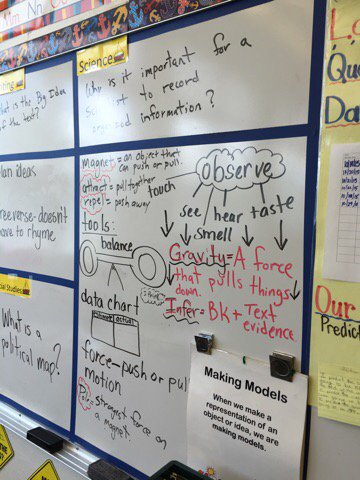 Mm Nn
Science
Why is it important for a
to record
information?
What is the Big Idea
of the text?
magnet = an object that
can push or pull.
attract = pull together
repel = push away
touch
OBSERVE
see
hear
taste
smell
tools:
balance
Gravity = A force
that pulls things
down.
I think
data chart
Infer = BK + Text
evidence
force - push or pull
motion
Pole = strongest force on
a magnet.
plan ideas
free verse - doesn't
have to rhyme
Social Studies
What is a
political map?
Making Models
When we make a
representation of an
object or idea, we are
making models.
Our
Predict